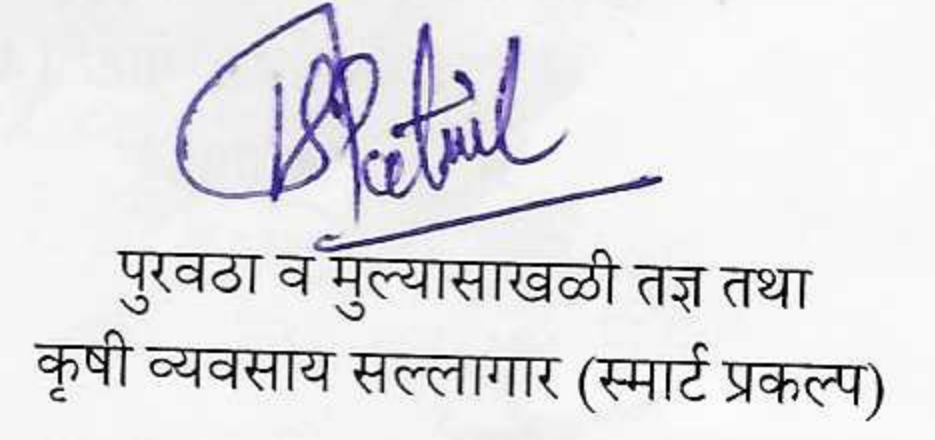 पुरवठा व मुल्यासाखळी तज्ञ तथा
कृषी व्यवसाय सल्लागार (स्मार्ट प्रकल्प)